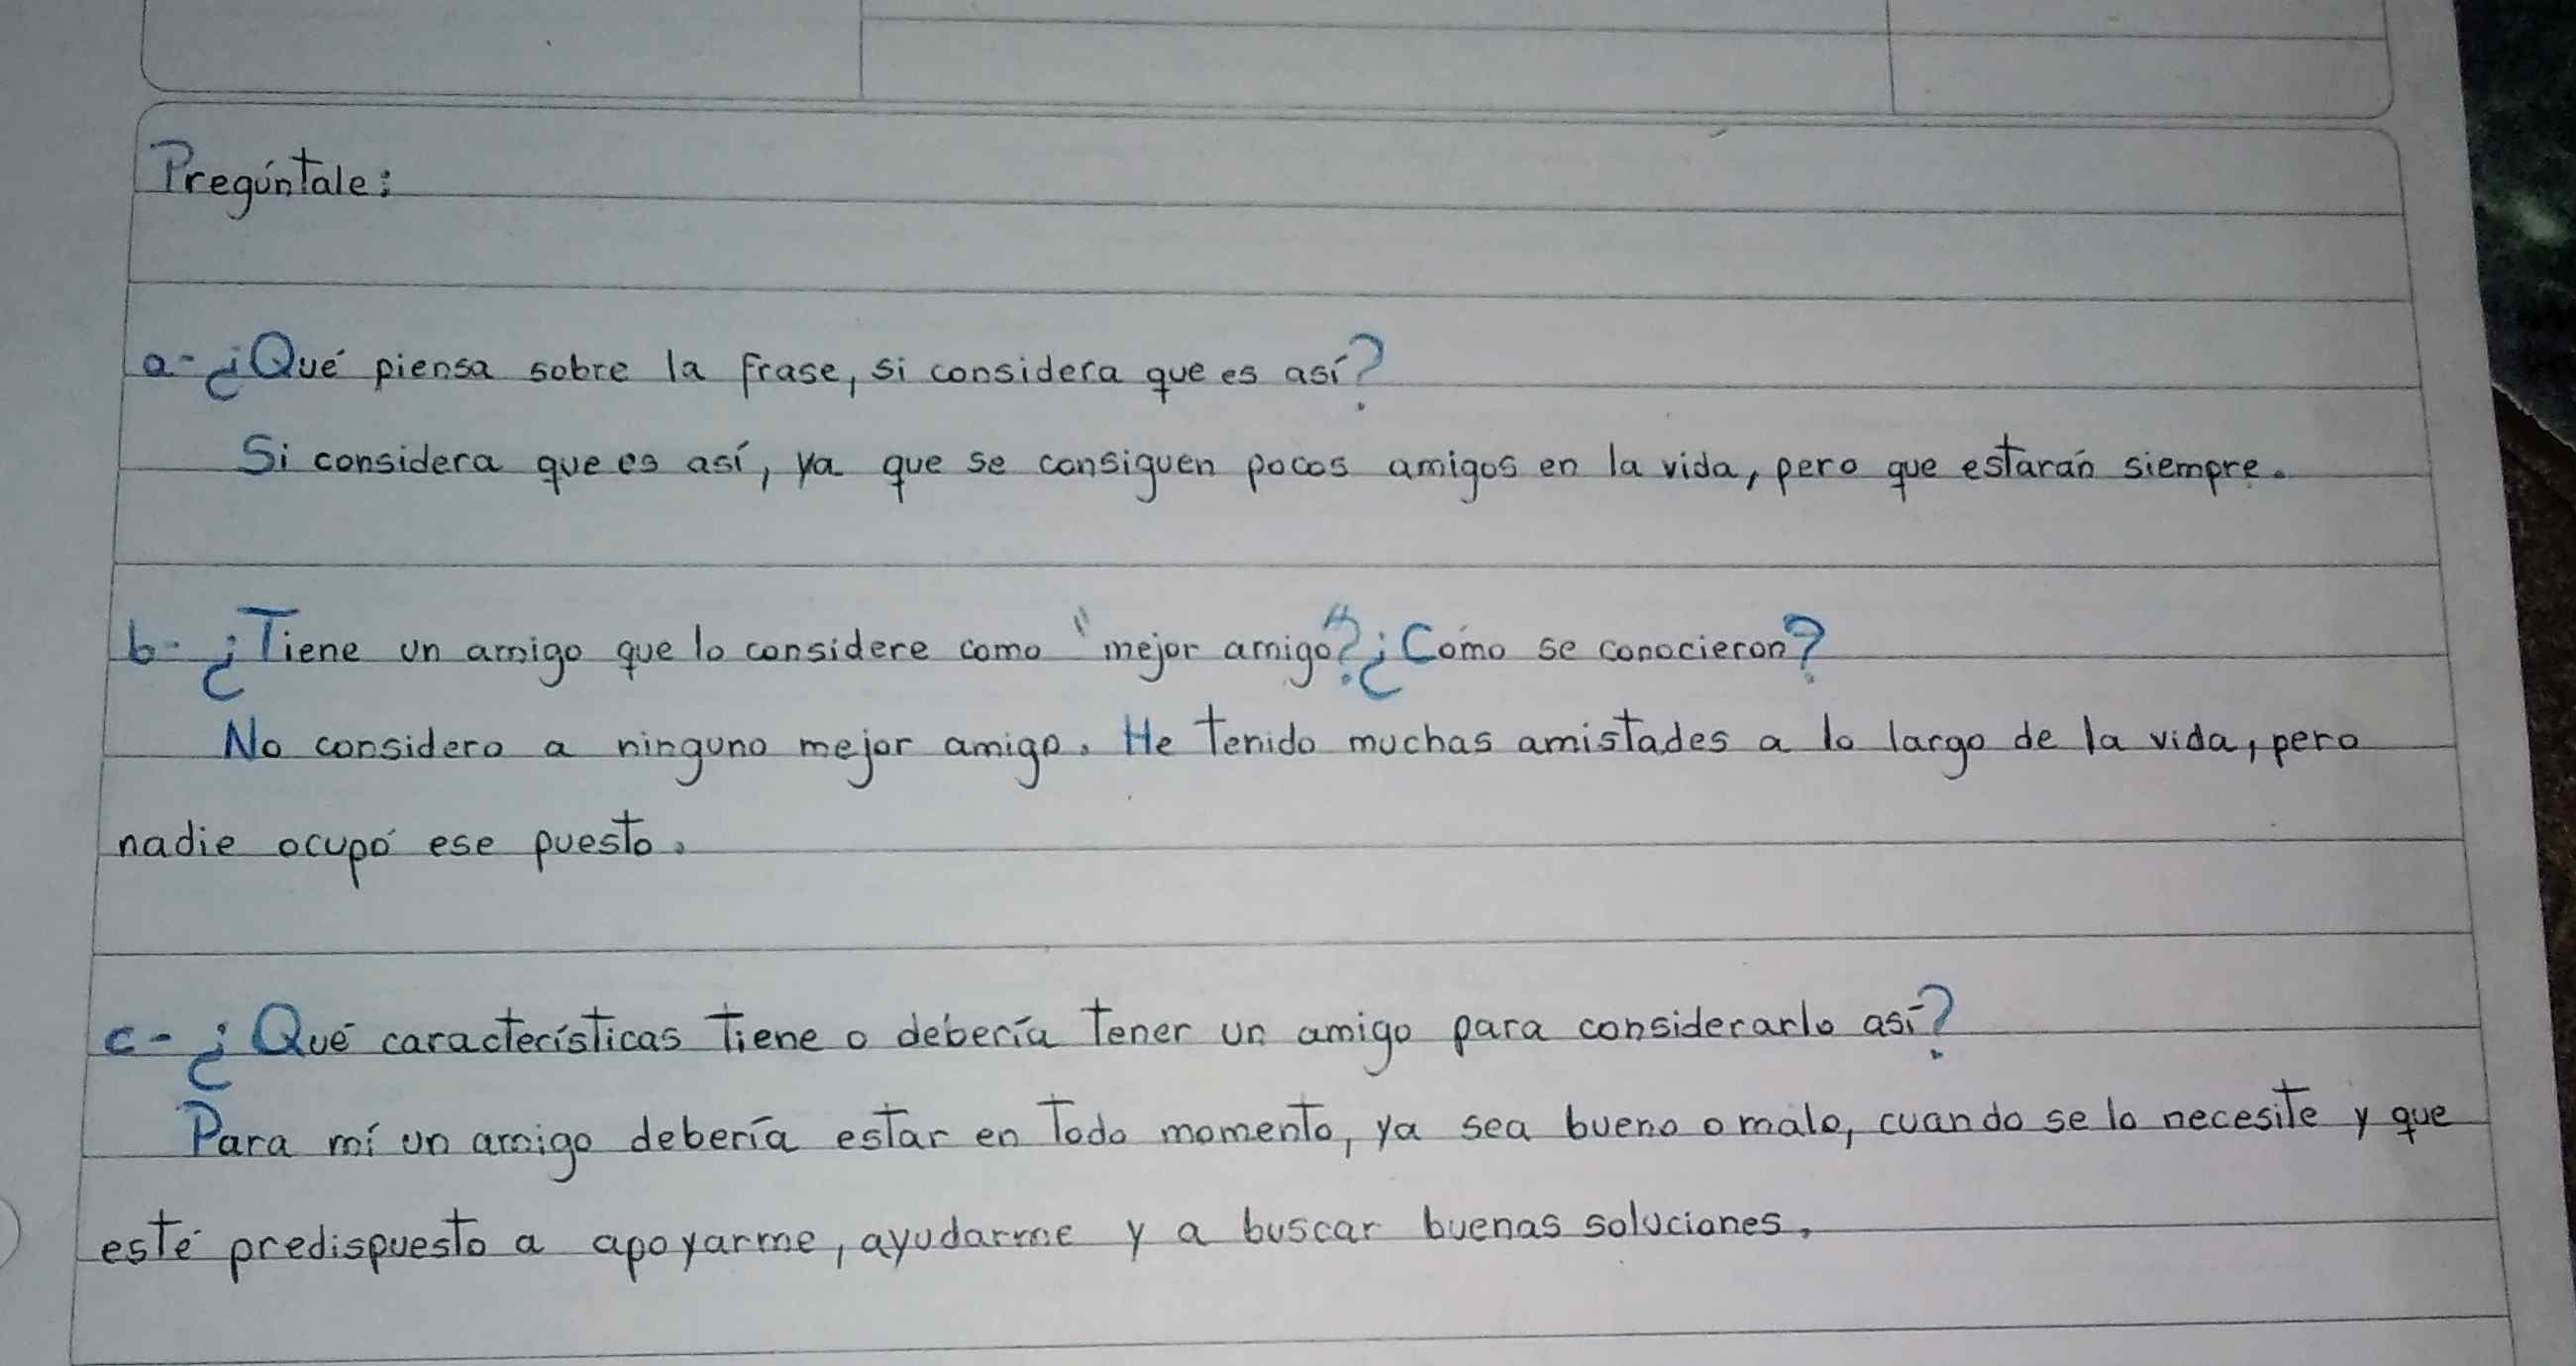 Pregúntale:
a-¿Qué piensa sobre la frase, si considera que es así?
Si considera que es así, ya que se consiguen pocos amigos en la vida, pero que estarán siempre.
b-¿Tiene un amigo que lo considere como "mejor amigo"?¿Cómo se conocieron?
No considero a ninguno mejor amigo. He tenido muchas amistades a lo largo de la vida, pero
nadie ocupó ese puesto.
c-¿Qué características tiene o debería tener un amigo para considerarlo así?
Para mí un amigo debería estar en todo momento, ya sea bueno o malo, cuando se lo necesite y que
esté predispuesto a apoyarme, ayudarme y a buscar buenas soluciones.